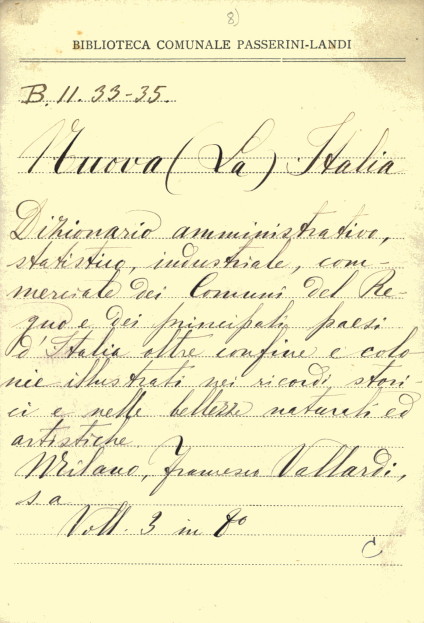 8)
BIBLIOTECA COMUNALE PASSERINI-LANDI
B. 11. 33-35.
Nuova (La) Italia
Dizionario amministrativo,
statistico, industriale, com-
merciale dei Comuni del Re-
gno e dei principali paesi
d'Italia oltre confine e colo
nie illustrati nei ricordi stori-
ci e nelle bellezze naturali ed
artistiche
Milano, Francesco Vallardi,
s. a
Voll. 3 in 8º
C